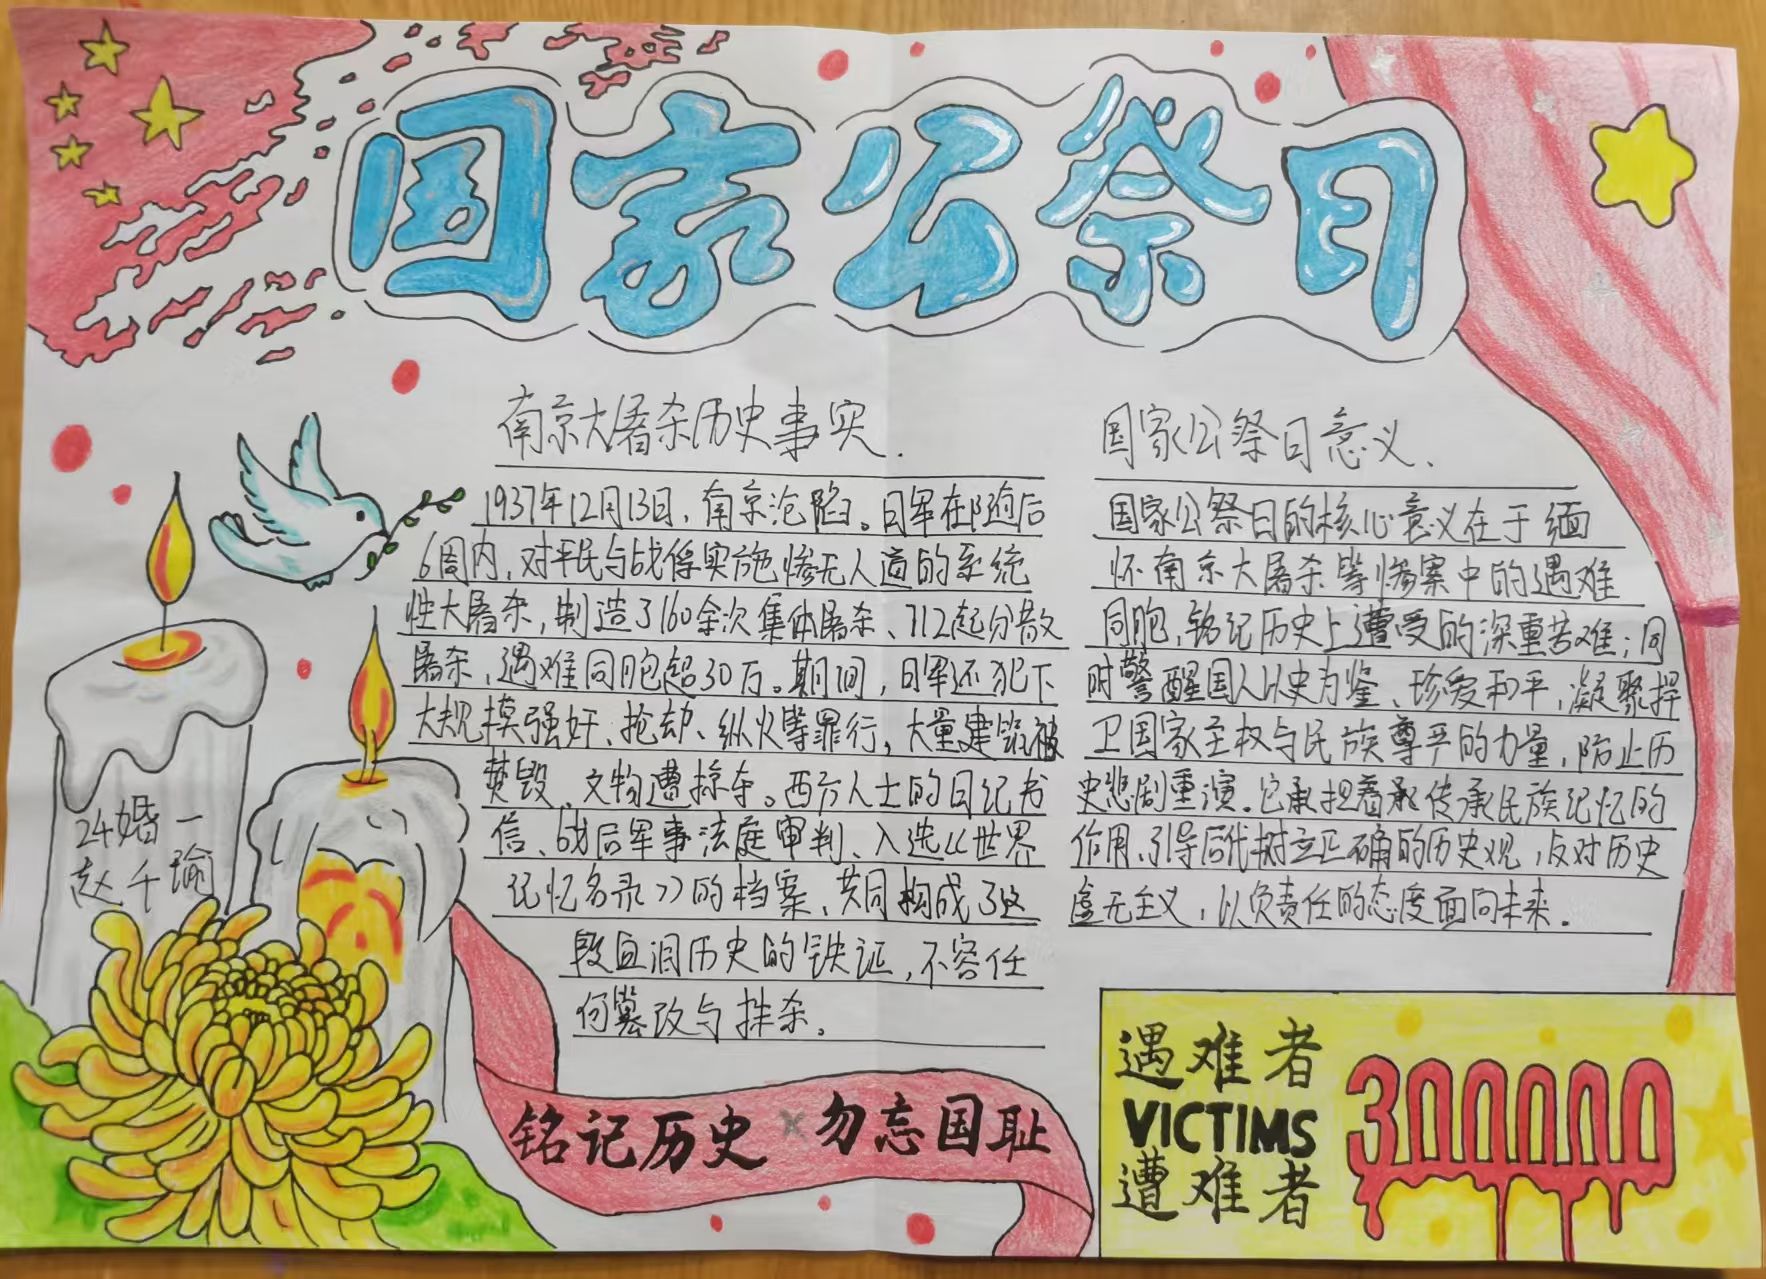 国家公祭日
南京大屠杀历史事实.
1937年12月13日,南京沦陷。日军在随后
6周内,对平民与战俘实施惨无人道的系统
性大屠杀,制造了160余次集体屠杀、712起分散
屠杀,遇难同胞超30万。期间,日军还犯下
大规模强奸、抢劫、纵火等罪行,大量建筑被
焚毁、文物遭掠夺。西方人士的日记书
信、战后军事法庭审判、入选《世界
记忆名录》的档案,共同构成了这
段血泪历史的铁证,不容任
何篡改与抹杀。
国家公祭日意义、
国家公祭日的核心意义在于缅
怀南京大屠杀等惨案中的遇难
同胞,铭记历史上遭受的深重苦难;同
时警醒国人以史为鉴、珍爱和平,凝聚捍
卫国家主权与民族尊严的力量,防止历
史悲剧重演。它承担着承传承民族记忆的
作用,引导后代树立正确的历史观,反对历史
虚无主义,以负责任的态度面向未来。
24婚一
赵千瑜
铭记历史 勿忘国耻
遇难者
VICTIMS
遭难者
300000